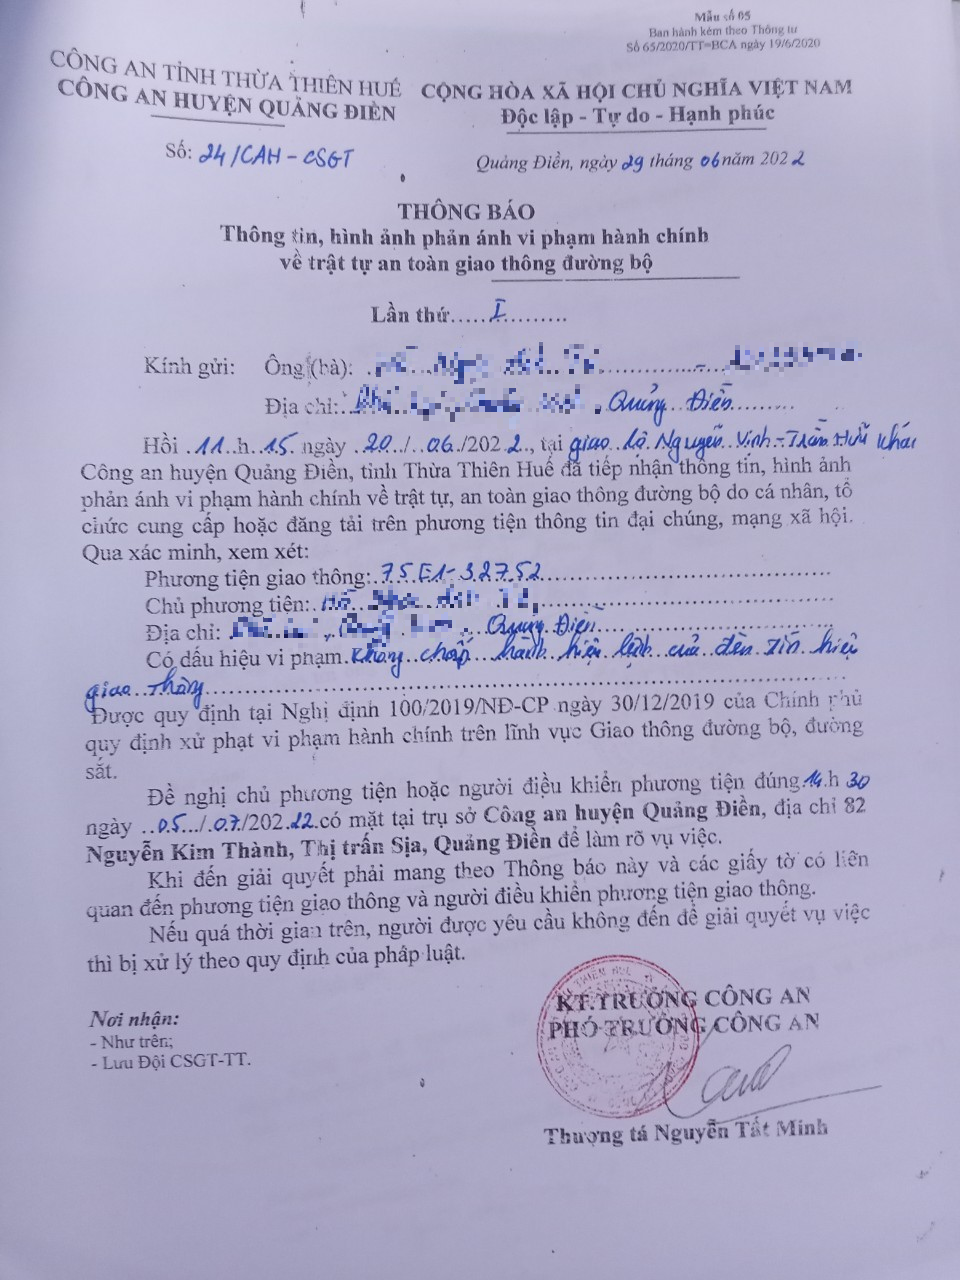 Mẫu số 05
Ban hành kèm theo Thông tư
Số 65/2020/TT=BCA ngày 19/6/2020
CÔNG AN TỈNH THỪA THIÊN HUẾ
CÔNG AN HUYỆN QUẢNG ĐIỀN
CỘNG HÒA XÃ HỘI CHỦ NGHĨA VIỆT NAM
Độc lập - Tự do - Hạnh phúc
Số: 24/CAH-CSGT
Quảng Điền, ngày 29 tháng 06 năm 2022
THÔNG BÁO
Thông tin, hình ảnh phản ánh vi phạm hành chính
về trật tự an toàn giao thông đường bộ
Lần thứ.....I.........
Kính gửi: Ông (bà):
Địa chỉ: , Quảng Điền
Hồi 11.h.15.ngày .20../..06./2022.., tại giao lộ Nguyễn Vịnh-Trần Hữu Khác
Công an huyện Quảng Điền, tỉnh Thừa Thiên Huế đã tiếp nhận thông tin, hình ảnh
phản ánh vi phạm hành chính về trật tự, an toàn giao thông đường bộ do cá nhân, tổ
chức cung cấp hoặc đăng tải trên phương tiện thông tin đại chúng, mạng xã hội.
Qua xác minh, xem xét:
Phương tiện giao thông: 75E1-327.52
Chủ phương tiện:
Địa chỉ: , Quảng Điền
Có dấu hiệu vi phạm Không chấp hành hiệu lệnh của đèn tín hiệu
giao thông
Được quy định tại Nghị định 100/2019/NĐ-CP ngày 30/12/2019 của Chính phủ
quy định xử phạt vi phạm hành chính trên lĩnh vực Giao thông đường bộ, đường
sắt.
Đề nghị chủ phương tiện hoặc người điều khiển phương tiện đúng 14.h 30
ngày ..05.../.07./202.22.có mặt tại trụ sở Công an huyện Quảng Điền, địa chỉ 82
Nguyễn Kim Thành, Thị trấn Sịa, Quảng Điền để làm rõ vụ việc.
Khi đến giải quyết phải mang theo Thông báo này và các giấy tờ có liên
quan đến phương tiện giao thông và người điều khiển phương tiện giao thông.
Nếu quá thời gian trên, người được yêu cầu không đến để giải quyết vụ việc
thì bị xử lý theo quy định của pháp luật.
KT.TRƯỞNG CÔNG AN
PHÓ TRƯỞNG CÔNG AN
Nơi nhận:
- Như trên;
- Lưu Đội CSGT-TT.
Thượng tá Nguyễn Tất Minh